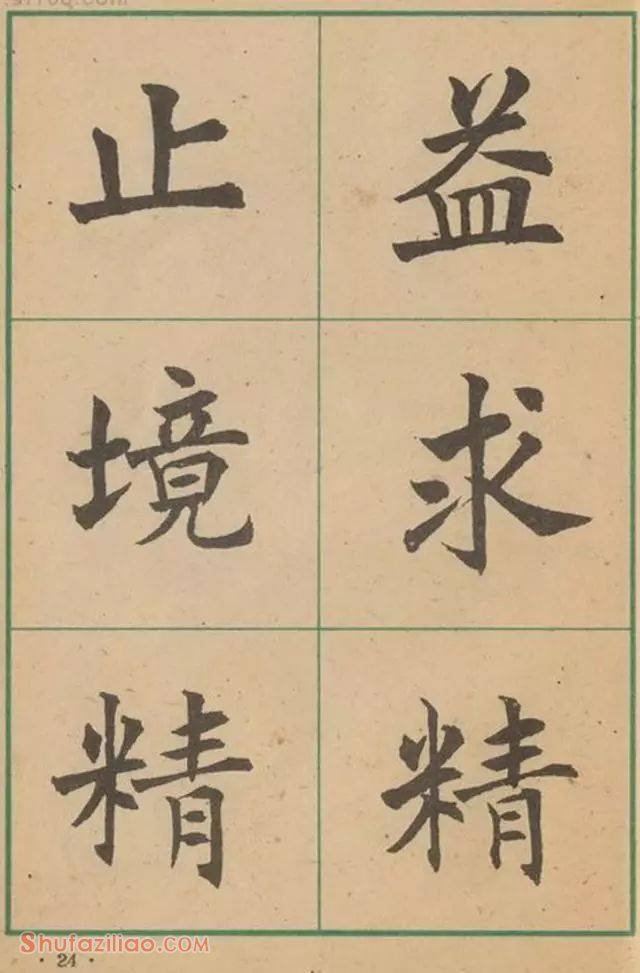 止境精
益求精
Shufaziliao.com
· 24 ·